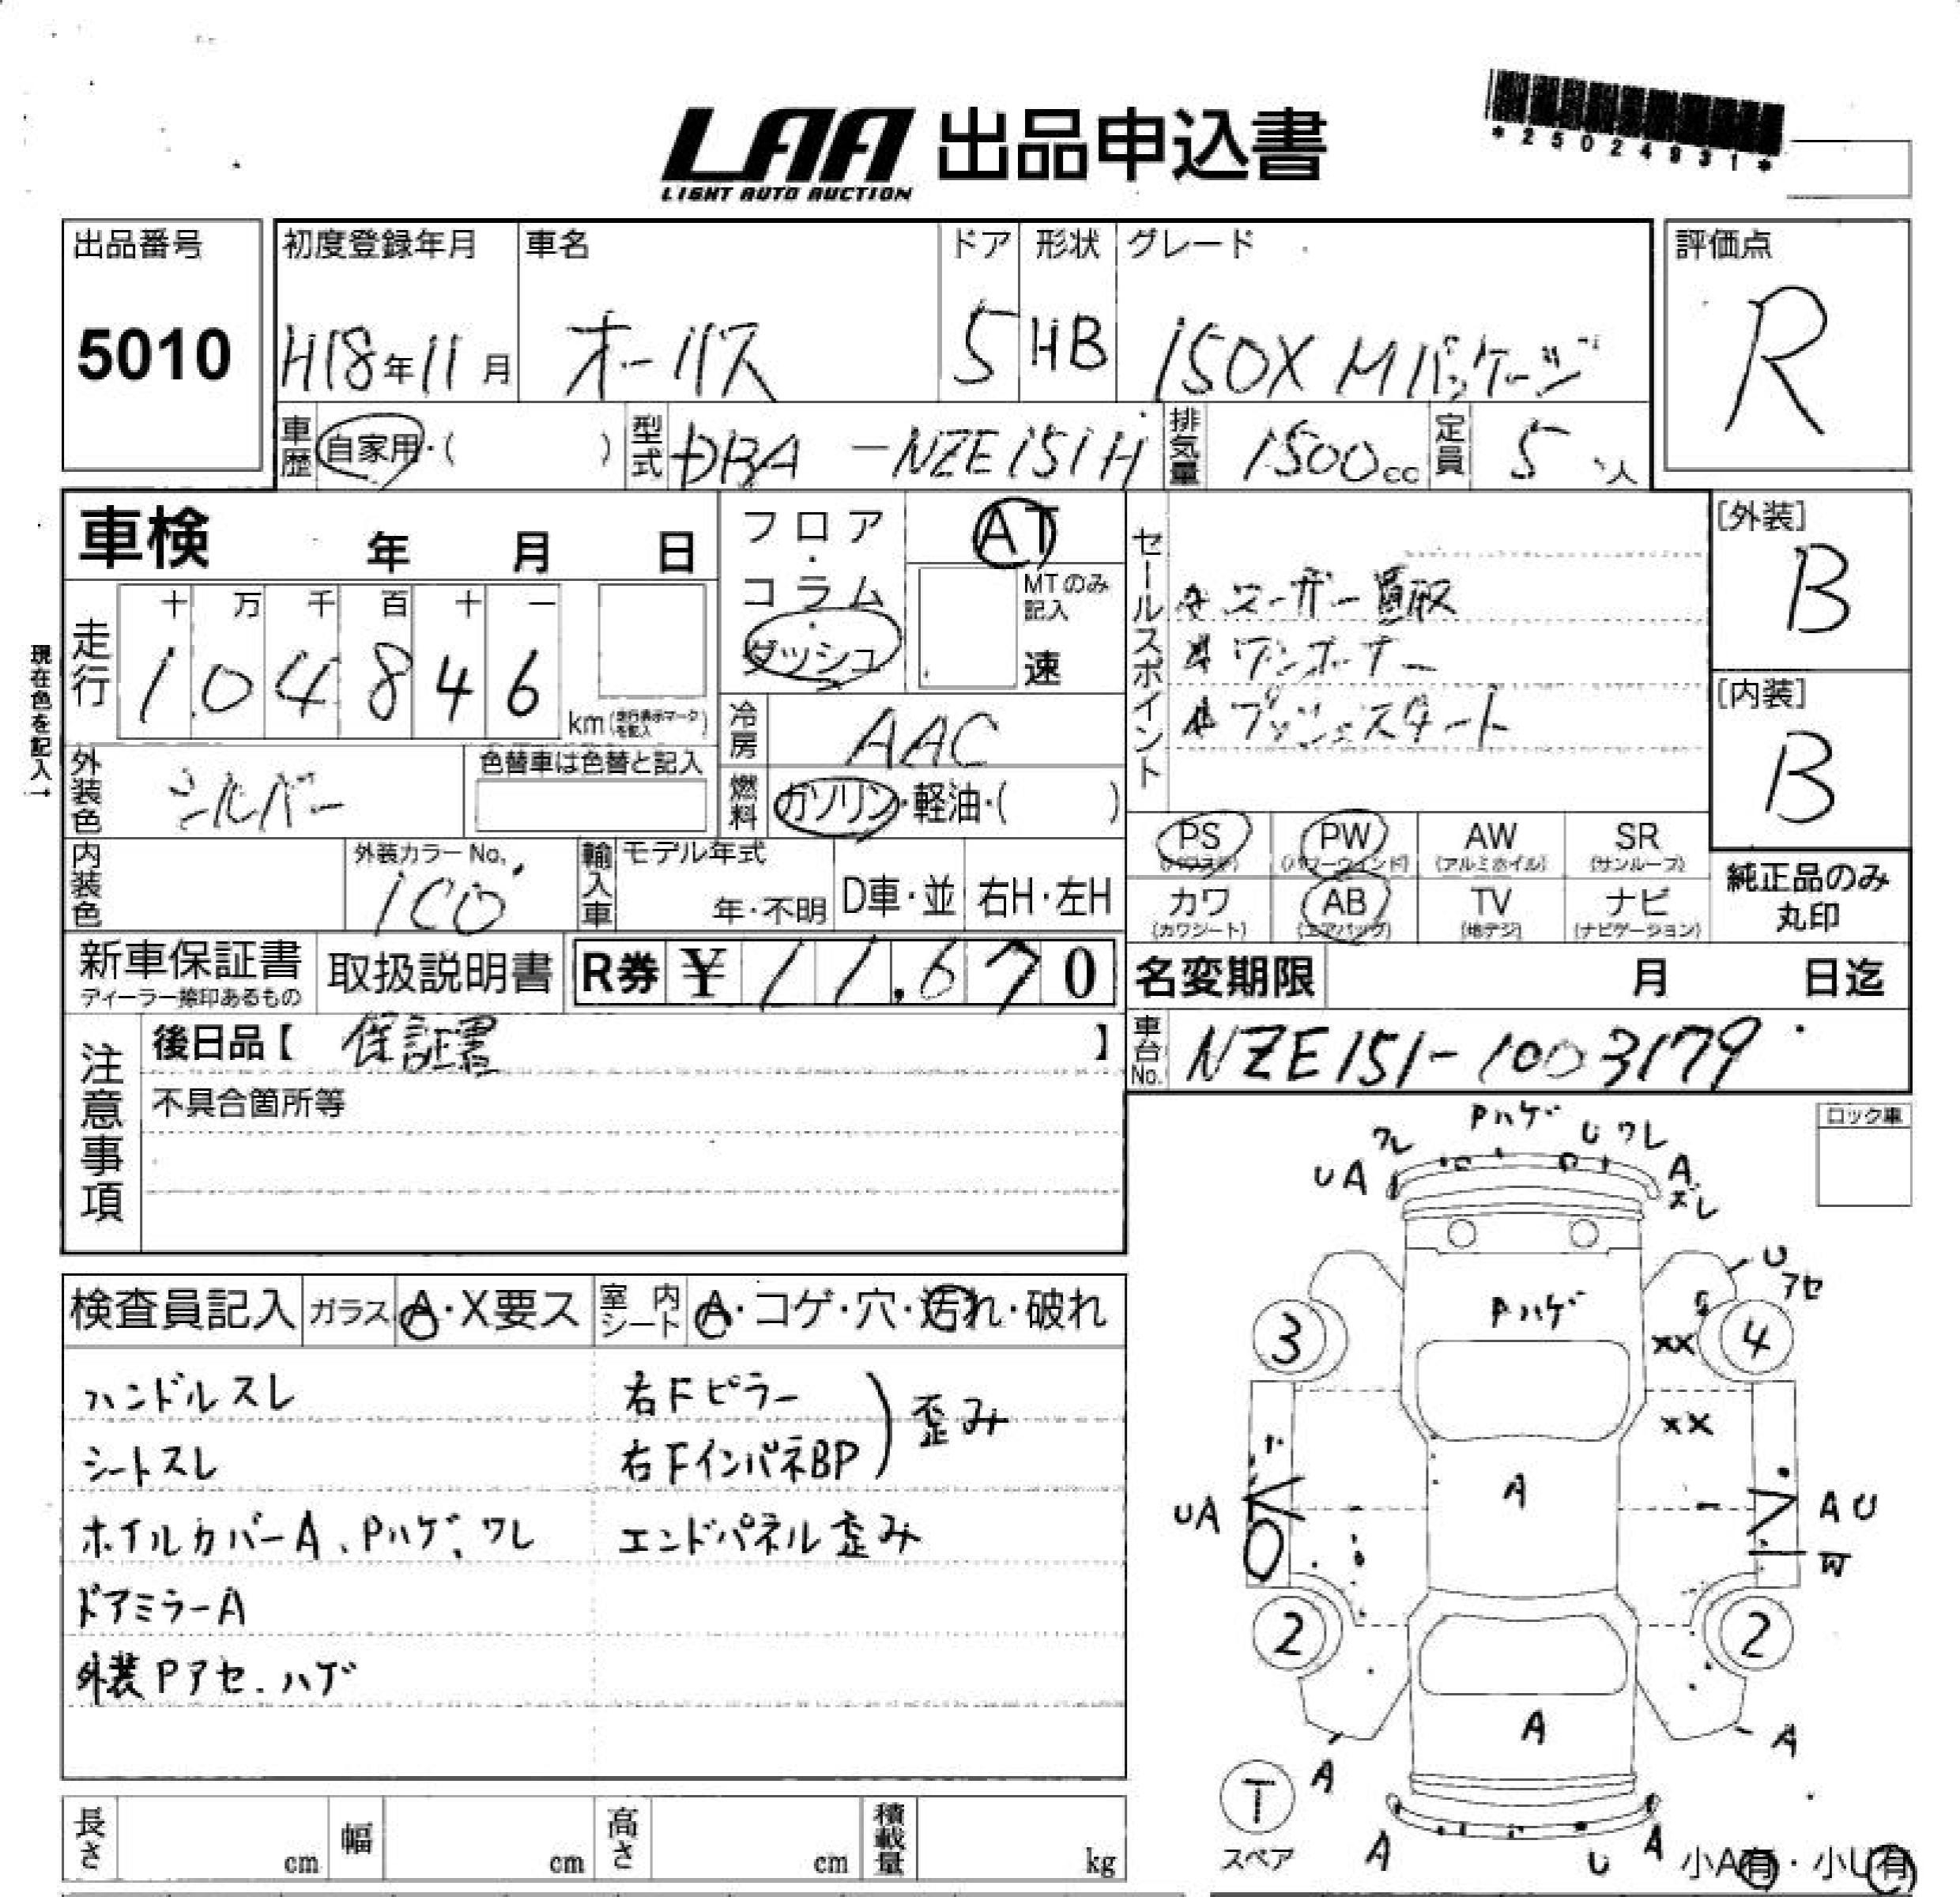 LAA 出品申込書
LIGHT AUTO AUCTION
*25024931*
出品番号
5010
初度登録年月
H18年11月
車名
オーリス
ドア
5
形状
HB
グレード
150X Mパッケージ
評価点
R
車歴
自家用・( )
型式
DBA-NZE151H
排気量
1500cc
定員
5人
車検 年 月 日
走行
十 万 千 百 十 一
104846
km(走行表示マークを記入)
現在色を記入↑
外装色
シルバー
色替車は色替と記入
内装色
外装カラーNo.
1C0
フロア・コラム・ダッシュ
AT
MTのみ記入
速
冷房
AAC
燃料
ガソリン・軽油・( )
輸入車
モデル年式
年・不明
D車・並
右H・左H
セールスポイント
ユーザー買取
ワンオーナー
プッシュスタート
[外装]
B
[内装]
B
PS
(パワステ)
PW
(パワーウィンド)
AW
(アルミホイル)
SR
(サンルーフ)
カワ
(カワシート)
AB
(エアバッグ)
TV
(地デジ)
ナビ
(ナビゲーション)
純正品のみ
丸印
新車保証書
ディーラー捺印あるもの
取扱説明書
R券 ¥11,670
名変期限 月 日迄
車台No.
NZE151-1003179
注意事項
後日品【 保証書 】
不具合箇所等
ロック車
検査員記入
ガラス A・X要ス
室内シート A・コゲ・穴・汚れ・破れ
ハンドルスレ
シートスレ
ホイルカバーA、Pハゲ、ワレ
ドアミラーA
外装Pアセ.ハゲ
右Fピラー
右FインパネBP
歪み
エンドパネル歪み
Pハゲ
ワレ
U ワレ
UA
A
ズレ
U
アセ
Pハゲ
3
4
XX
XX
A
UA
AU
W
2
2
A
A
A
T
スペア
A
U
A
小A有・小U有
長さ cm
幅 cm
高さ cm
積載量 kg